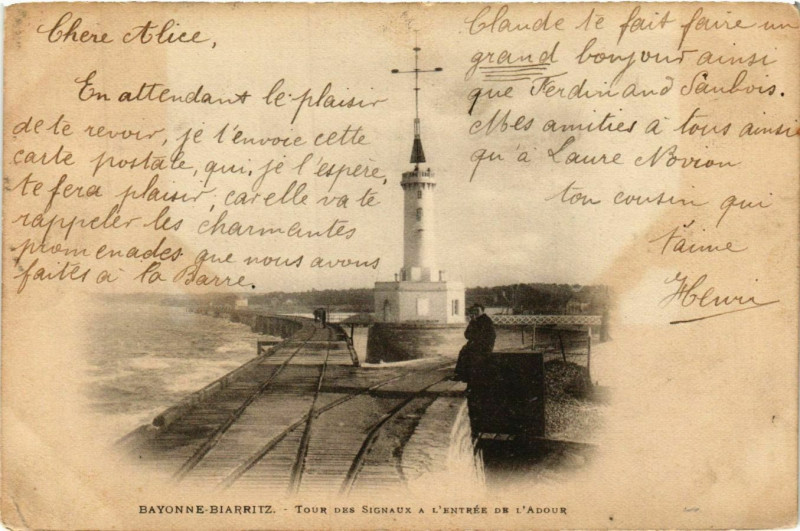 Chere Alice,
En attendant le plaisir
de te revoir, je t'envoie cette
carte postale, qui, je l'espère,
te fera plaisir, car elle va te
rappeler les charmantes
promenades que nous avons
faites à la Barre.
Claude te fait faire un
grand bonjour ainsi
que Ferdinand Saubois.
Mes amitiés à tous ainsi
qu'à Laure Novion
ton cousin qui
t'aime
Henri
BAYONNE-BIARRITZ. - TOUR DES SIGNAUX A L'ENTRÉE DE L'ADOUR